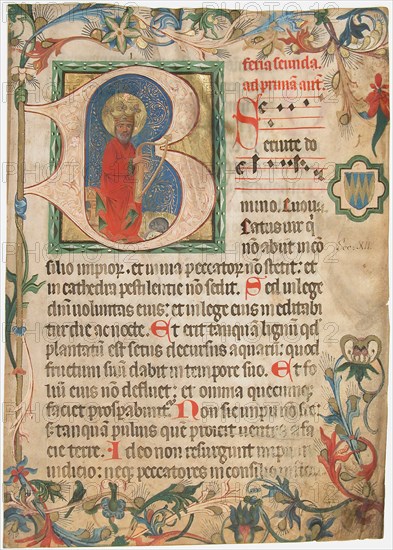 feria secunda
ad primā añt.
Seruite do
mino. Euouae
Beatus uir q̄
nō abijt in cō
silio impior̄. et in uia peccator̄ nō stetit: et
in cathedra pestilentie nō sedit. Sed in lege
dn̄i uoluntas eius: et in lege eius meditabi
tur die ac nocte. Et erit tanquā lignū qd
plantatū est secus decursus aquarū: quod
fructum suū dabit in tempore suo. Et fo
liū eius nō defluet: et omnia quecumq̄
faciet prosp̄abunt̄. Non sic impij nō sic:
s; tanquā puluis que proicit uentus a fa
cie terre. Ideo non resurgunt impij in
iudicio: neq; peccatores in consilio